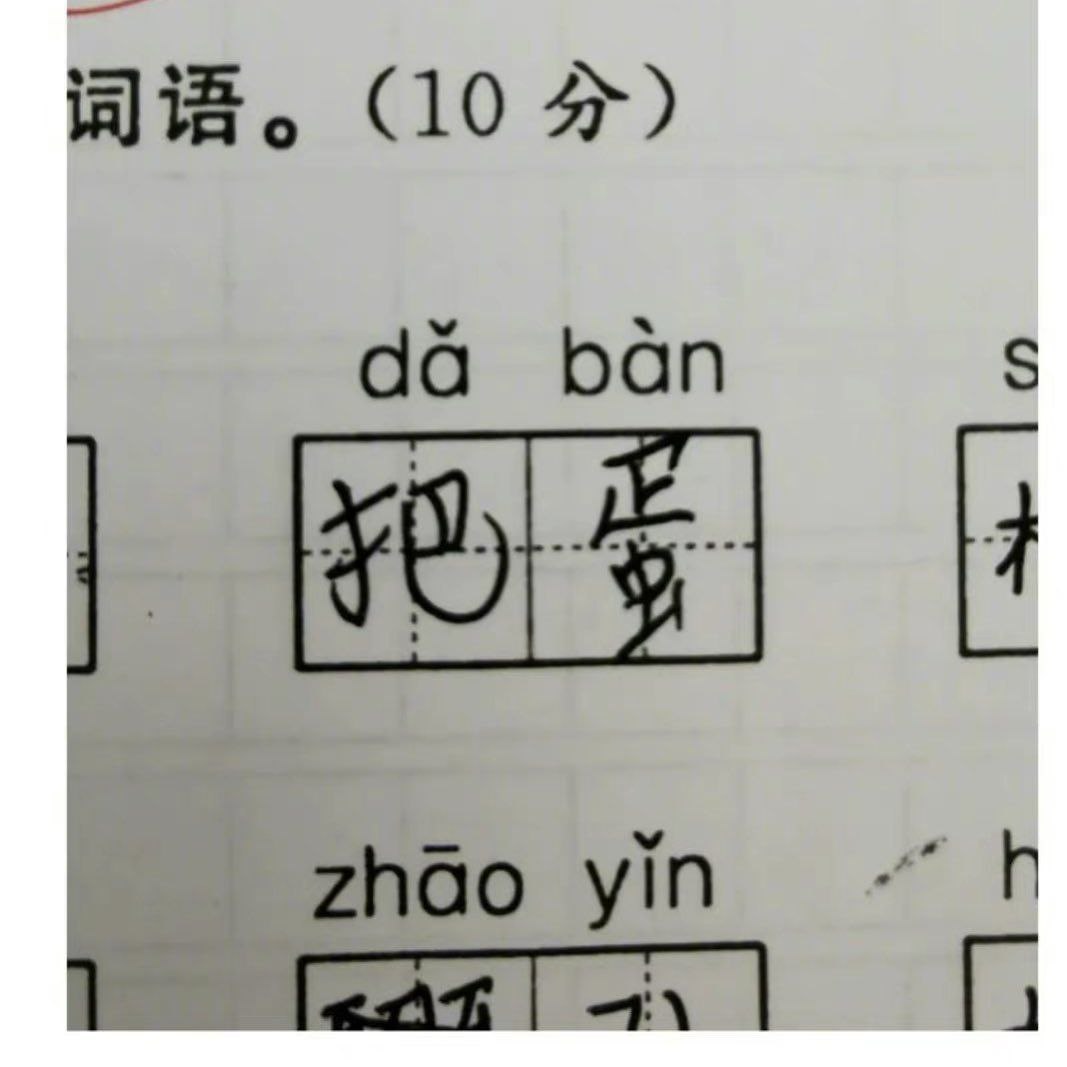 词语。（10 分）
dǎ bàn
把蛋
zhāo yǐn